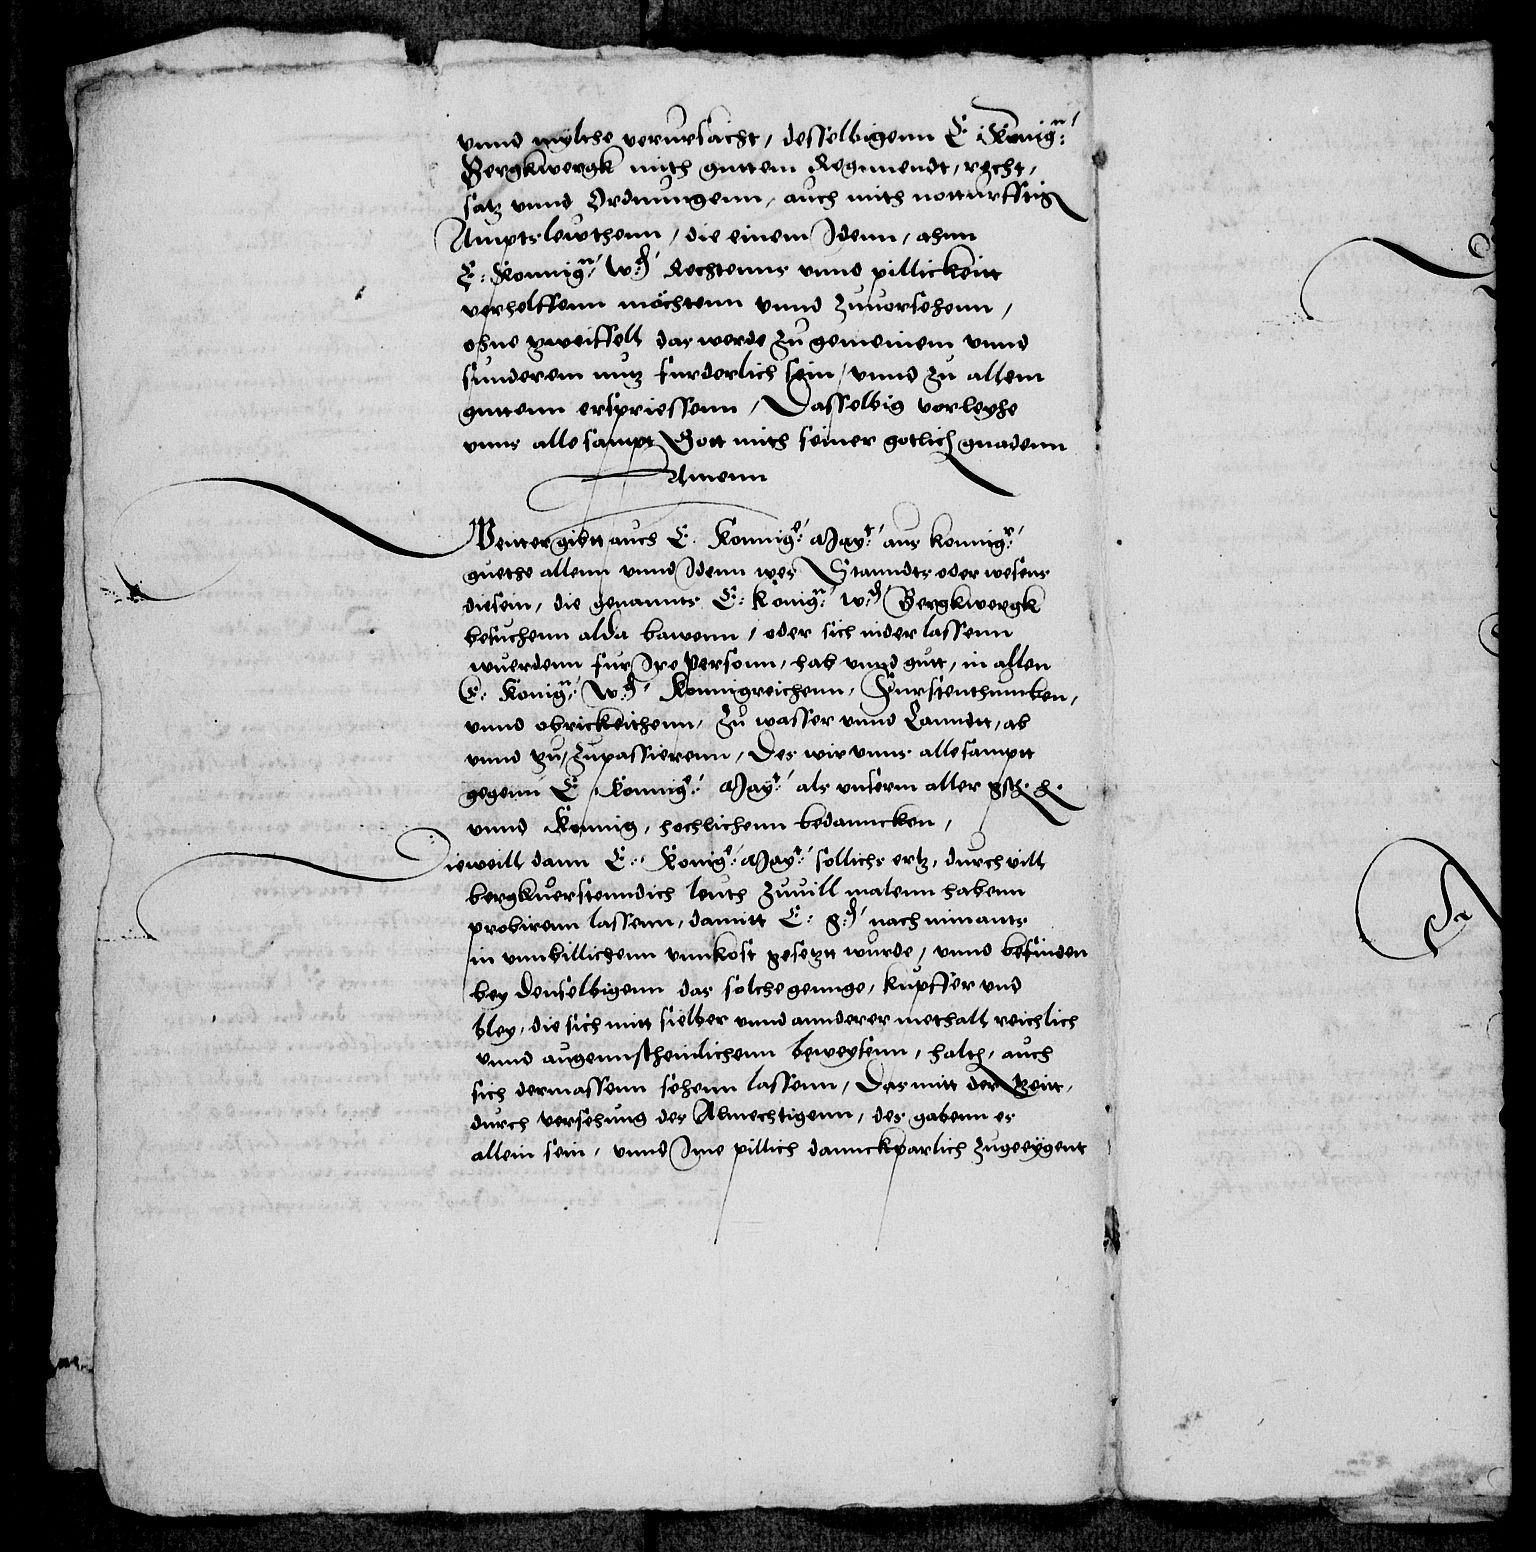 vnnd mylche verursacht, desselbigenn E: König^n:
Bergkwergk mith guttem Regimendt, recht,
satz vnnd Ordnungenn, auch mith notturfftig
Amptslewthenn, die einem Idenn, ahnn
E: Konnig^n: w^d: Rechtenns vnnd pillickeitt
verhelffenn möchtenn vnnd zuuorsehenn,
ohne zweiffell das werde zu gemeinem vnnd
sunderem nutz furderlich sein, vnnd zu allem
guttenn erspriessenn, Dasselbig vorleyhe
vnns alle sampt Gott mith seiner gotlich gnadenn
Amenn
Weitter gibtt auch E. Konnig^e: May^t: aus konnig^r:
guethe allenn vnnd Idenn wes Stanndts oder wesens
die sein, die genannts E: König^n: w^d: Bergkwergk
besuchenn alda bawenn, oder sich nider lassenn
wuerdenn fur Ire Personn, hab vnnd gutt, in allen
E: König^n: w^d: Konnigreichenn, Furstenthumben,
vnnd obrickeithenn, zu wasser vnnd Lanndtt, ab
vnnd zu, zupassierenn, Des wir vnns alle samptt
gegenn E. Konnig^e: May^t: als vnserm aller gst. h.
vnnd Konnig, hochlichenn bedanncken,
Dieweill dann E: König^e: May^t: sollichs ertz, durch vill
bergkuerstenndich leuth zuuill malenn habenn
probirenn lassenn, damitt E: g^d: nach nimants
in vnnbillichenn vnnkost gesetztt wurde, vnnd befinden
bey denselbigenn das solche genge, kupffer vnd
bley, die sich mitt sielber vnnd annderer methall reichlich
vnnd augennscheinlichenn beweysenn, halth, auch
sich dermassenn sehenn lassenn, Das mitt der Zeitt,
durch versehung des Almechtigenn, des gabenn es
allein sein, vnnd Ime pillich danckparlich zugeeygent